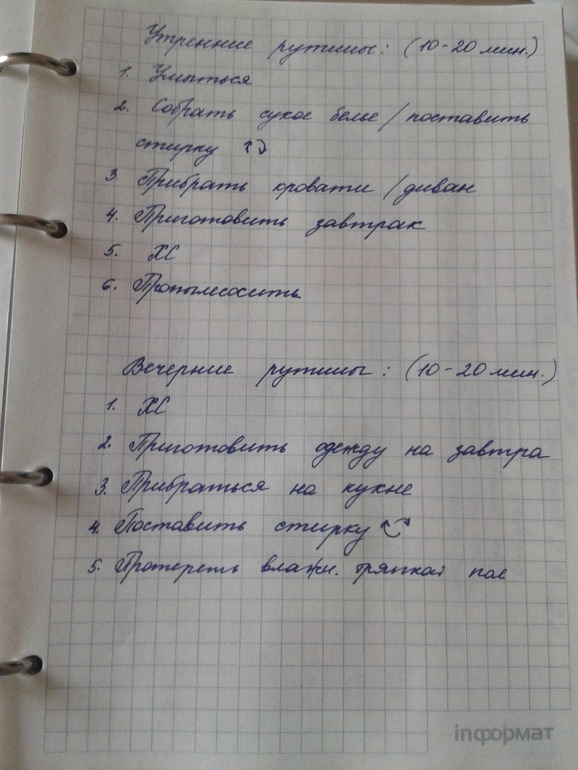 Утренние рутины: (10-20 мин.)
1. Умыться
2. Собрать сухое белье/поставить
стирку
3. Прибрать кровати/диван
4. Приготовить завтрак
5. ХС
6. Пропылесосить
Вечерние рутины: (10-20 мин.)
1. ХС
2. Приготовить одежду на завтра
3. Прибраться на кухне
4. Поставить стирку
5. Протереть влажн. тряпкой пол
inформат